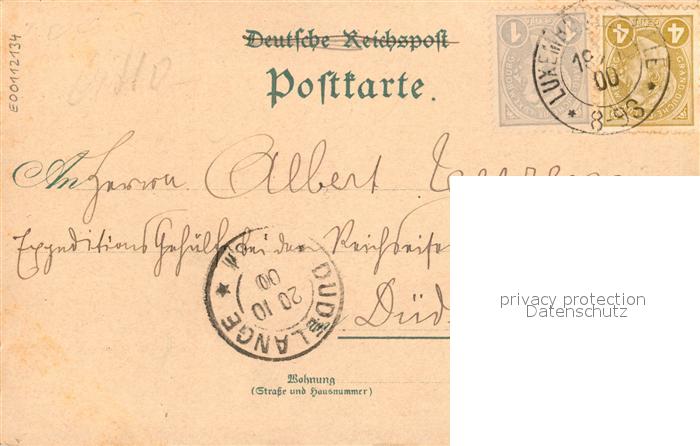 E00112134
Deutsche Reichspost
Postkarte.
1 1
4 4
GRAND-DUCHÉ
LUXEMBOURG
18
00
8-9S
An Herrn Albert
Expeditions Gehülfe bei den Reichseise
DUDELANGE
20 10
00
Düd
Wohnung
(Straße und Hausnummer)
privacy protection
Datenschutz